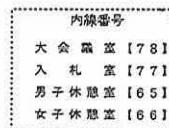 内線番号
大会議室【78】
入札室【77】
男子休憩室【65】
女子休憩室【66】